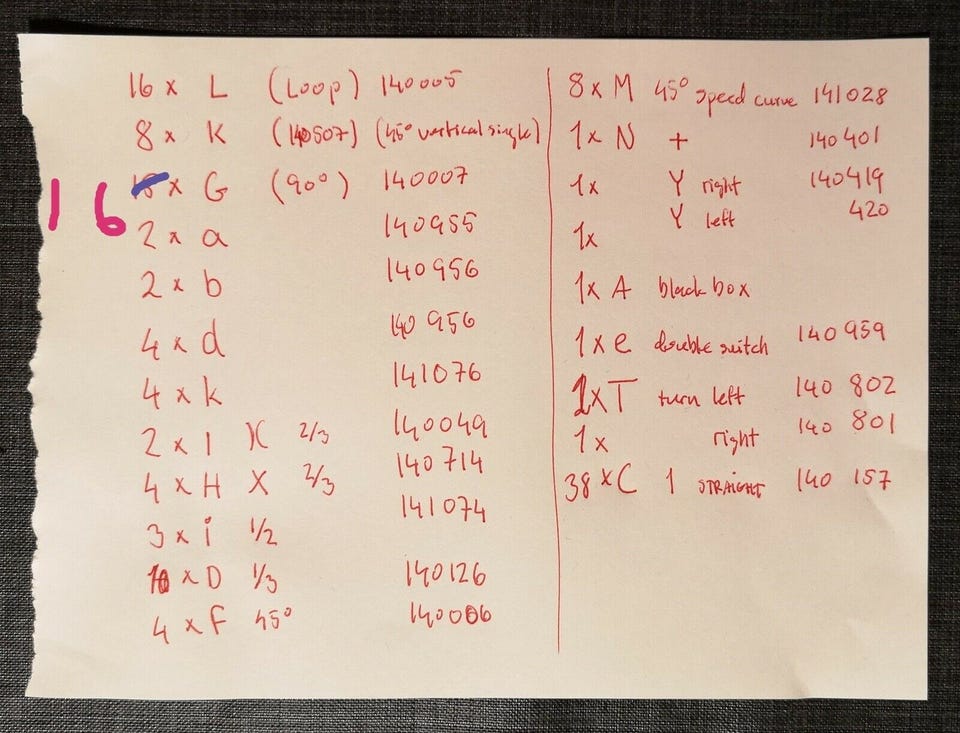 16 x L (Loop) 140005
8 x K (140507) (45° vertical single)
16 x G (90°) 140007
2 x a 140955
2 x b 140956
4 x d 140 956
4 x k 141076
2 x I )( 2/3 140049
4 x H X 2/3 140714
3 x i 1/2 141074
10 x D 1/3 140126
4 x F 45° 140006
8 x M 45° speed curve 141028
1 x N + 140401
1x Y right 140419
1x Y left 420
1x A black box
1 x e double switch 140959
1xT turn left 140 802
1x right 140 801
38 x C 1 STRAIGHT 140 157